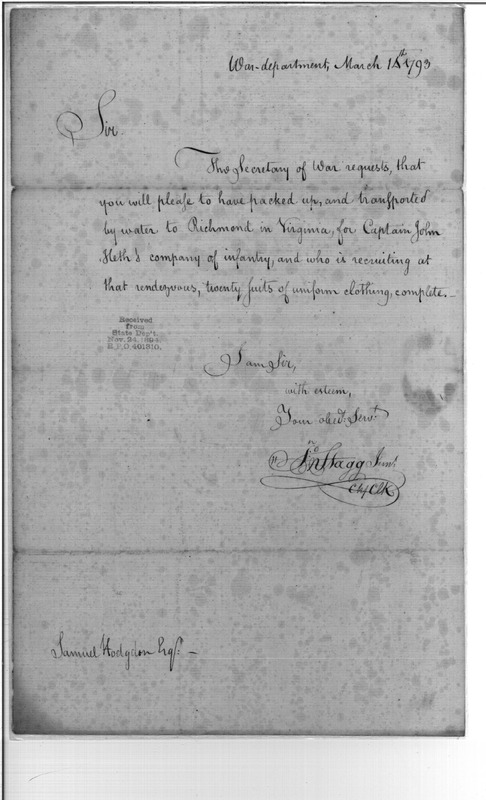 War-department, March 1793
Sir
The Secretary of War requests, that
you will please to have packed up, and transported
by water to Richmond in Virginia, for Captain John
Heth's company of infantry, and who is recruiting at
that rendezvous, twenty suits of uniform clothing, complete.—
Received
from
State Dep't.
Nov. 24, 1894
R.P.O. 401310.
I am Sir,
with esteem,
Your obedt. Servt.
Jno Stagg Junr
Chf Clk
Samuel Hodgdon Esqr. —